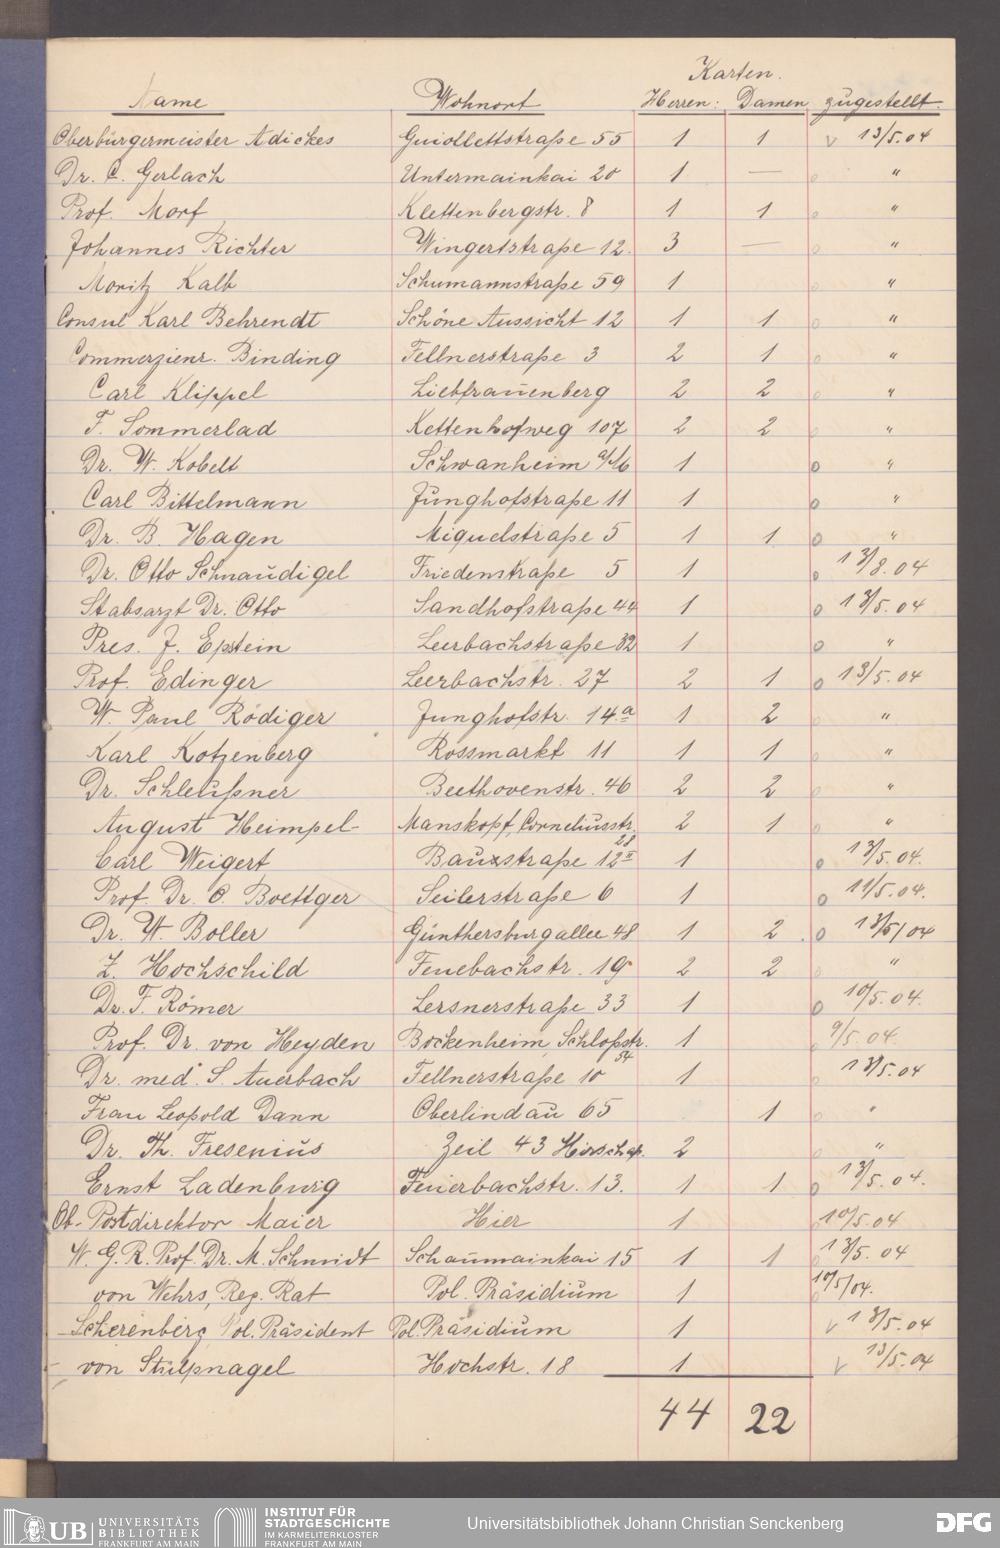 Karten.
Name Wohnort Herren: Damen zugestellt.
Oberbürgermeister Adickes Guiollettstraße 55 1 1 v 13/5.04
Dr. C. Gerlach Untermainkai 20 1 — o "
Prof. Morf Klettenbergstr. 8 1 1 o "
Johannes Richter Wingertstraße 12. 3 — o "
Moritz Kalb Schumannstraße 59 1 o "
Consul Karl Behrendt Schöne Aussicht 12 1 1 o "
Commerzienr. Binding Fellnerstraße 3 2 1 o "
Carl Klippel Liebfrauenberg 2 2 o "
F. Sommerlad Kettenhofweg 107 2 2 o "
Dr. W. Kobelt Schwanheim a/M 1 o "
Carl Bittelmann Junghofstraße 11 1 o "
Dr. B. Hagen Miquelstraße 5 1 1 o "
Dr. Otto Schnaudigel Friedenstraße 5 1 o 13/8.04
Stabsarzt Dr. Otto Sandhofstraße 44 1 o 13/5.04
Pres. J. Epstein Leerbachstraße 32 1 o "
Prof. Edinger Leerbachstr. 27 2 1 o 13/5.04
W. Paul Rödiger Junghofstr. 14a 1 2 o "
Karl Kotzenberg Rossmarkt 11 1 1 o "
Dr. Schleußner Beethovenstr. 46 2 2 o "
August Heimpel- Manskopf, Corneliusstr. 2 1 o "
28
Carl Weigert Bauxstraße 12 II 1 o 13/5.04.
Prof. Dr. O. Boettger Seilerstraße 6 1 o 11/5.04.
Dr. W. Boller Günthersburgallee 48 1 2 o 13/5/04
Z. Hochschild Feuebachstr. 19 2 2 o "
Dr. F. Römer Lersnerstraße 33 1 o 10/5.04.
Prof. Dr. von Heyden Bockenheim, Schloßstr. 1 o 9/5.04.
54
Dr. med. S. Auerbach Fellnerstraße 10 1 o 13/5.04
Frau Leopold Dann Oberlindau 65 1 o "
Dr. Th. Fresenius Zeil 43 Hirschap. 2 o "
Ernst Ladenburg Feuerbachstr. 13. 1 1 o 13/5.04.
Ob. Postdirektor Maier Hier 1 o 10/5.04
W. G. R. Prof. Dr. M. Schmidt Schaumainkai 15 1 1 o 13/5.04
von Wehrs, Reg. Rat Pol. Präsidium 1 o 10/5/04.
Scherenberg Pol. Präsident Pol. Präsidium 1 v 13/5.04
von Stülpnagel Hochstr. 18 1 v 13/5.04
44 22
UB UNIVERSITÄTS BIBLIOTHEK FRANKFURT AM MAIN
INSTITUT FÜR STADTGESCHICHTE IM KARMELITERKLOSTER FRANKFURT AM MAIN
Universitätsbibliothek Johann Christian Senckenberg
DFG